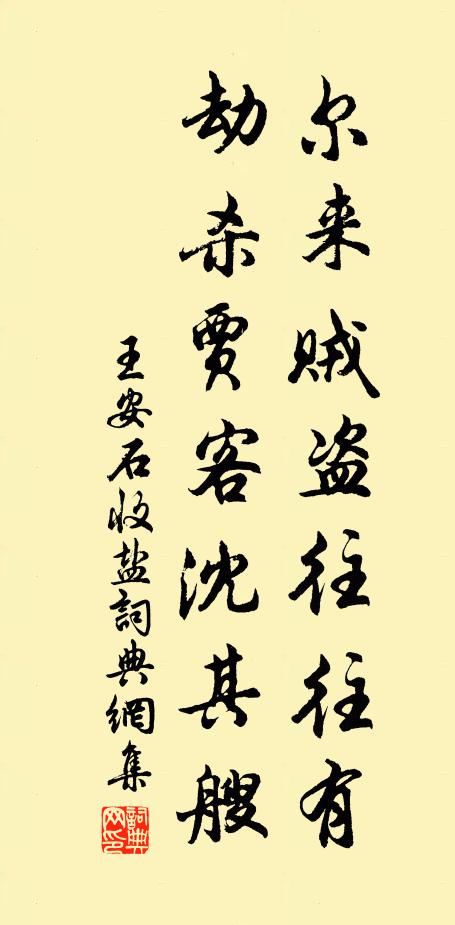 尔来贼盗往往有
劫杀贾客沈其艘
王安石收盐词典網集
詞典網印